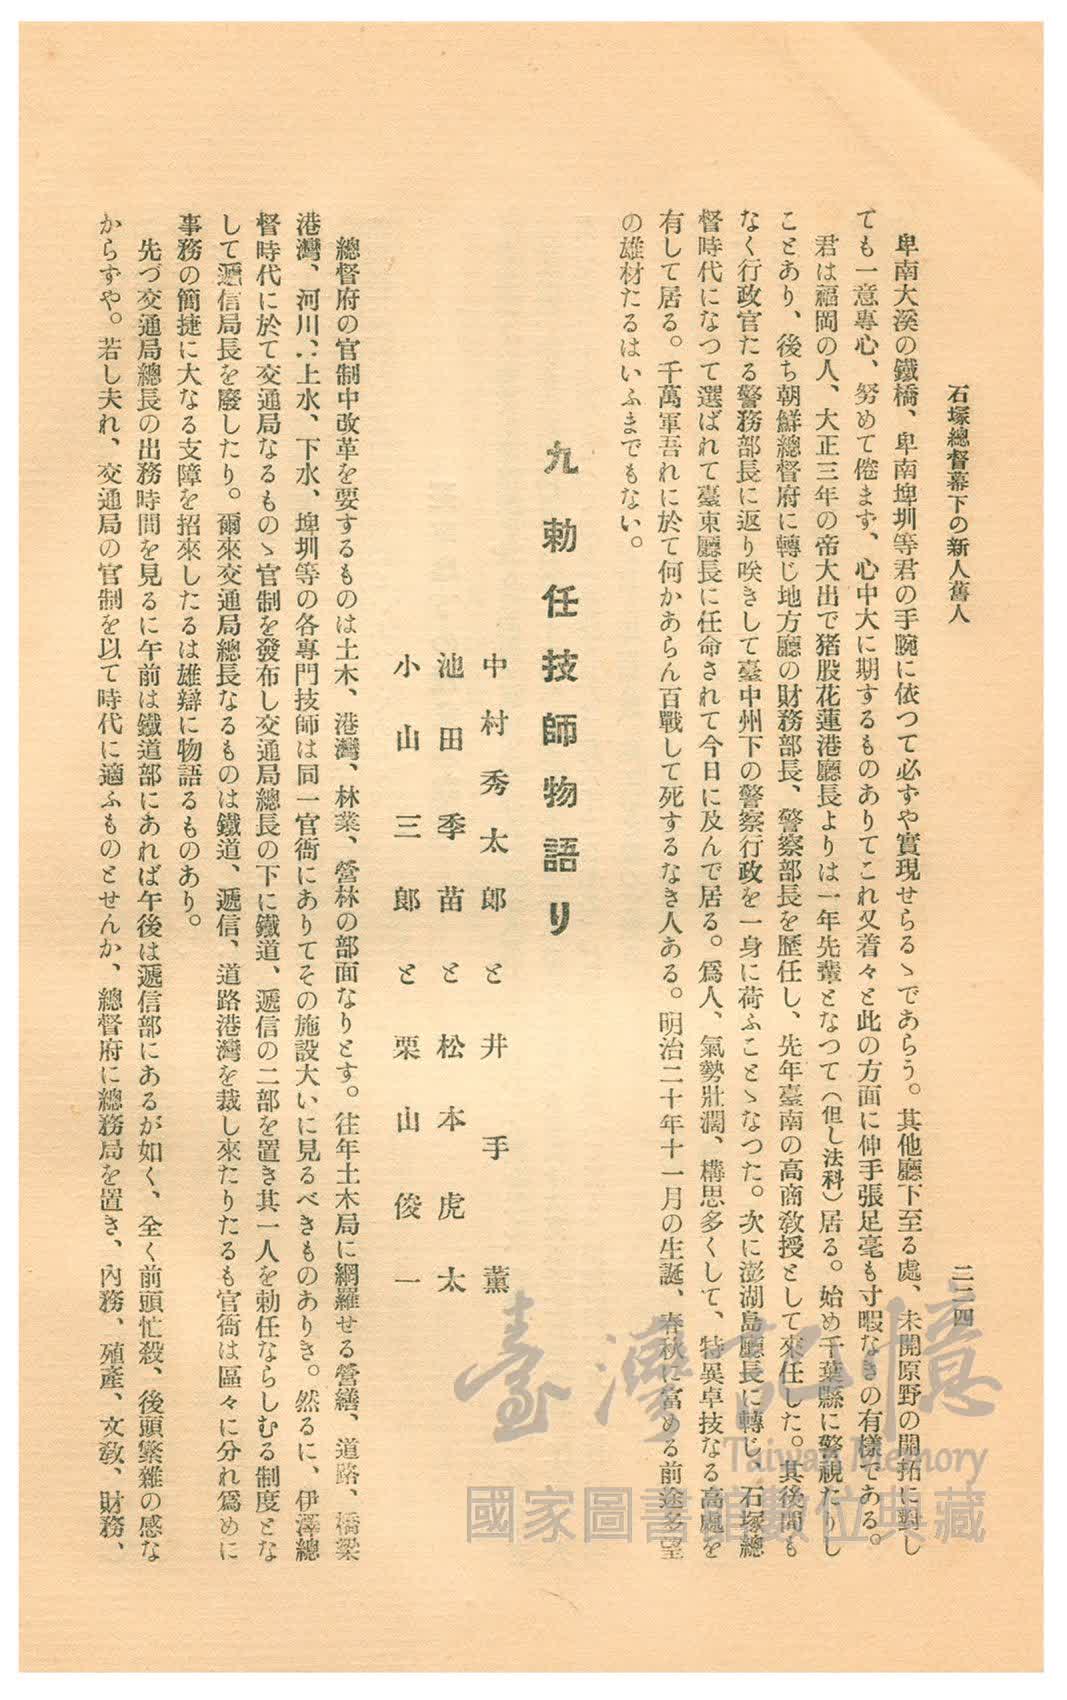 石塚總督幕下の新人舊人
二二四
卑南大溪の鐵橋、卑南埤圳等君の手腕に依つて必ずや實現せらるゝであらう。其他廳下至る處、未開原野の開拓に對し
ても一意專心、努めて倦まず、心中大に期するものありてこれ又着々と此の方面に伸手張足毫も寸暇なきの有樣である。
君は福岡の人、大正三年の帝大出で猪股花蓮港廳長よりは一年先輩となつて（但し法科）居る。始め千葉縣に警視たりし
ことあり、後ち朝鮮總督府に轉じ地方廳の財務部長、警察部長を歷任し、先年臺南の高商敎授として來任した。其後間も
なく行政官たる警務部長に返り咲きして臺中州下の警察行政を一身に荷ふことゝなつた。次に澎湖島廳長に轉じ、石塚總
督時代になつて選ばれて臺東廳長に任命されて今日に及んで居る。爲人、氣勢壯濶、構思多くして、特異卓技なる高處を
有して居る。千萬軍吾れに於て何かあらん百戰して死するなき人ある。明治二十年十一月の生誕、春秋に富める前途多望
の雄材たるはいふまでもない。
九 勅任技師物語り
中村秀太郞と井手薰
池田季苗と松本虎太
小山三郞と栗山俊一
總督府の官制中改革を要するものは土木、港灣、林業、營林の部面なりとす。往年土木局に網羅せる營繕、道路、橋梁
港灣、河川、上水、下水、埤圳等の各專門技師は同一官衙にありてその施設大いに見るべきものありき。然るに、伊澤總
督時代に於て交通局なるものゝ官制を發布し交通局總長の下に鐵道、遞信の二部を置き其一人を勅任ならしむる制度とな
して遞信局長を廢したり。爾來交通局總長なるものは鐵道、遞信、道路港灣を裁し來たりたるも官衙は區々に分れ爲めに
事務の簡捷に大なる支障を招來したるは雄辯に物語るものあり。
先づ交通局總長の出務時間を見るに午前は鐵道部にあれば午後は遞信部にあるが如く、全く前頭忙殺、後頭繁雜の感な
からずや。若し夫れ、交通局の官制を以て時代に適ふものとせんか、總督府に總務局を置き、內務、殖產、文敎、財務、
臺灣記憶
Taiwan Memory
國家圖書館數位典藏